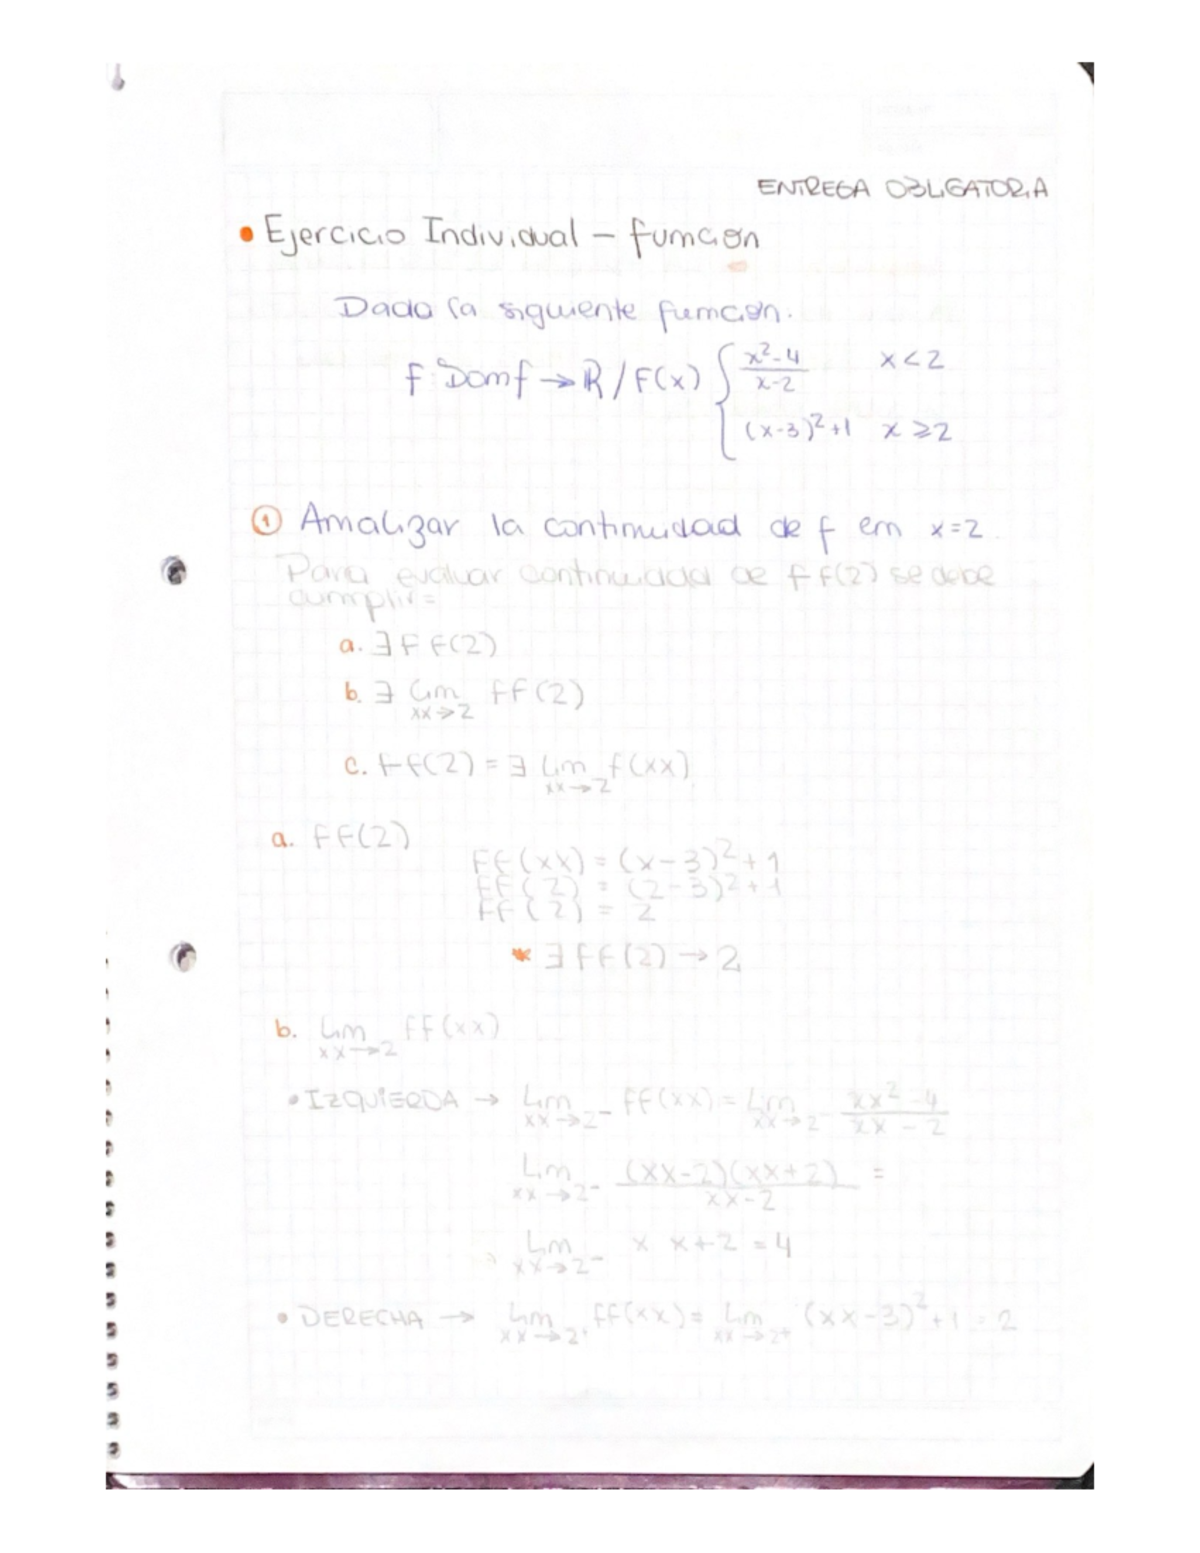 ENTREGA OBLIGATORIA
• Ejercicio Individual – función
Dada la siguiente función:
f: Domf → R / F(x) { x²-4 / x-2   x < 2
(x-3)²+1   x ≥ 2
① Analizar la continuidad de f en x=2.
Para evaluar continuidad de f f(2) se debe
cumplir=
a. ∃ f f(2)
b. ∃ Lim ff(2)
xx→2
c. ff(2) = ∃ Lim f(xx)
xx→2
a. ff(2)
ff(xx) = (x-3)²+1
ff(2) = (2-3)²+1
ff(2) = 2
* ∃ ff(2) → 2
b. Lim ff(xx)
xx→2
• IZQUIERDA → Lim ff(xx) = Lim xx²-4 / xx-2
xx→2- xx→2-
Lim (xx-2)(xx+2) / xx-2 =
xx→2-
Lim x x+2 = 4
xx→2-
• DERECHA → Lim ff(xx) = Lim (xx-3)²+1 = 2
xx→2+ xx→2+